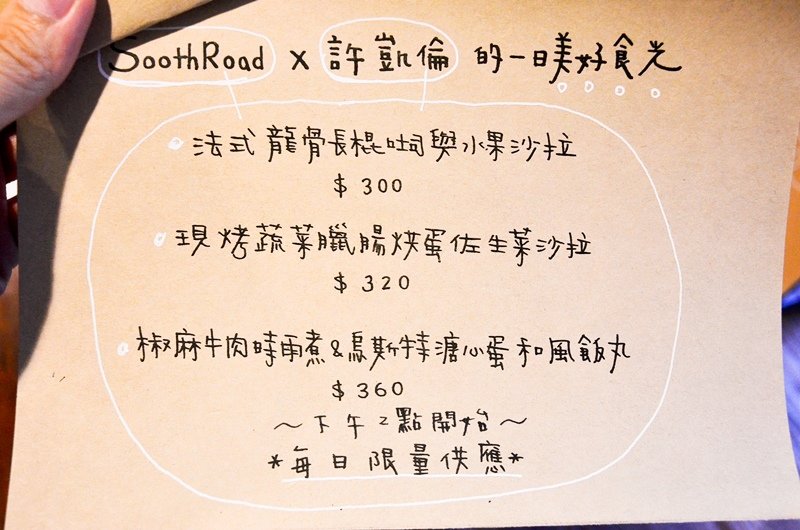 SoothRoad x 許凱倫 的一日美好食光
法式龍骨長棍吐司與水果沙拉
$ 300
現烤蔬菜臘腸烘蛋佐生菜沙拉
$ 320
椒麻牛肉時雨煮&烏斯特溏心蛋和風飯丸
$ 360
～下午2點開始～
*每日限量供應*